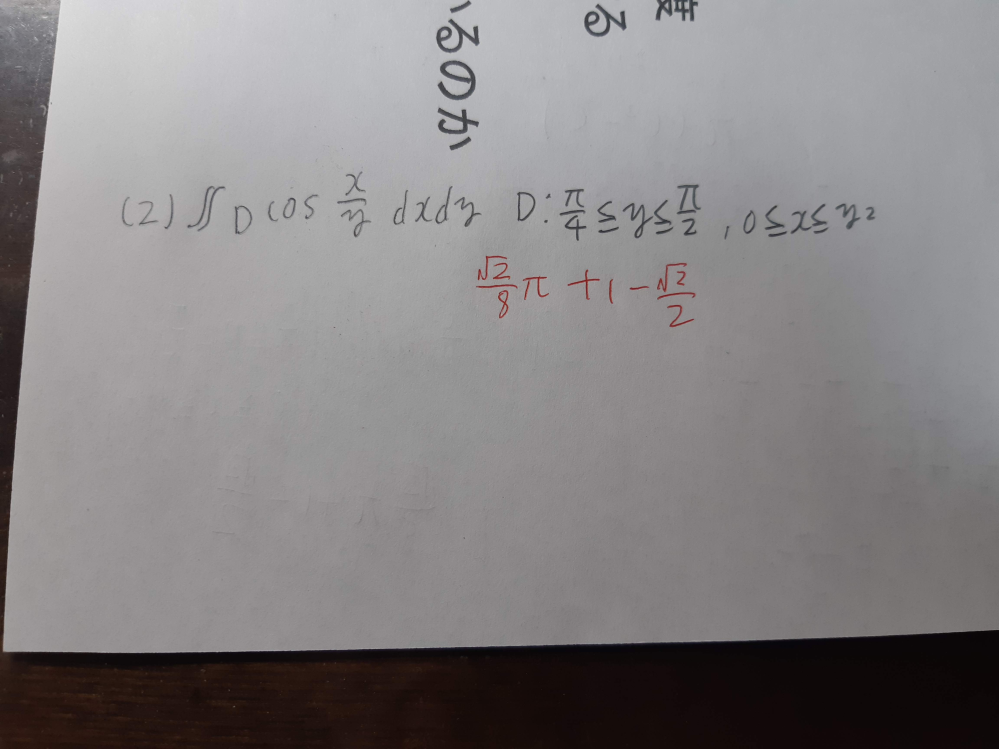 るのか
る
(2) ∬_D cos x/y dxdy D: π/4 ≦ y ≦ π/2 , 0 ≦ x ≦ y²
√2/8 π + 1 - √2/2